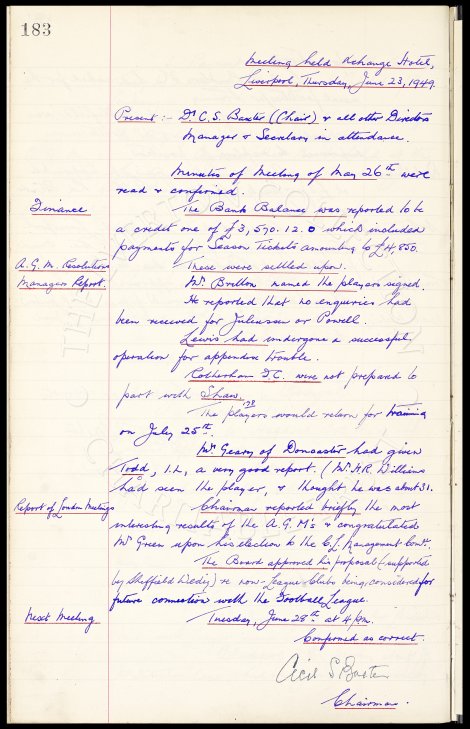 183
Meeting held Xchange Hotel,
Liverpool, Thursday, June 23, 1949.
Present :- Dr. C. S. Baxter (Chair) & all other Directors
Manager & Secretary in attendance.
Minutes of Meeting of May 26th were
read & confirmed.
Finance
The Bank Balance was reported to be
a credit one of £3,590.12.0 which included
payments for Season Tickets amounting to £4,850.
A.G.M. Resolutions
These were settled upon.
Managers Report.
Mr. Britton named the players signed.
He reported that no enquiries had
been received for Juliussen or Powell.
Lewis had undergone a successful
operation for appendix trouble.
Rotherham F.C. were not prepared to
part with Shaw.
The players would return for training
on July 25th.
Mr. Geary of Doncaster had given
Todd, I.L, a very good report. (Mr. H.R. Williams
had seen the player, & thought he was about 31.
Report of London Meetings
Chairman reported briefly the most
interesting results of the A.G.M's & congratulated
Mr Green upon his election to the C.L. Management Comte.
The Board approved his proposal (supported
by Sheffield Wedy) re non-League Clubs being considered for
future connection with the Football League.
Next Meeting
Tuesday, June 28th at 4 pm.
Confirmed as correct.
Cecil S Baxter
Chairman.